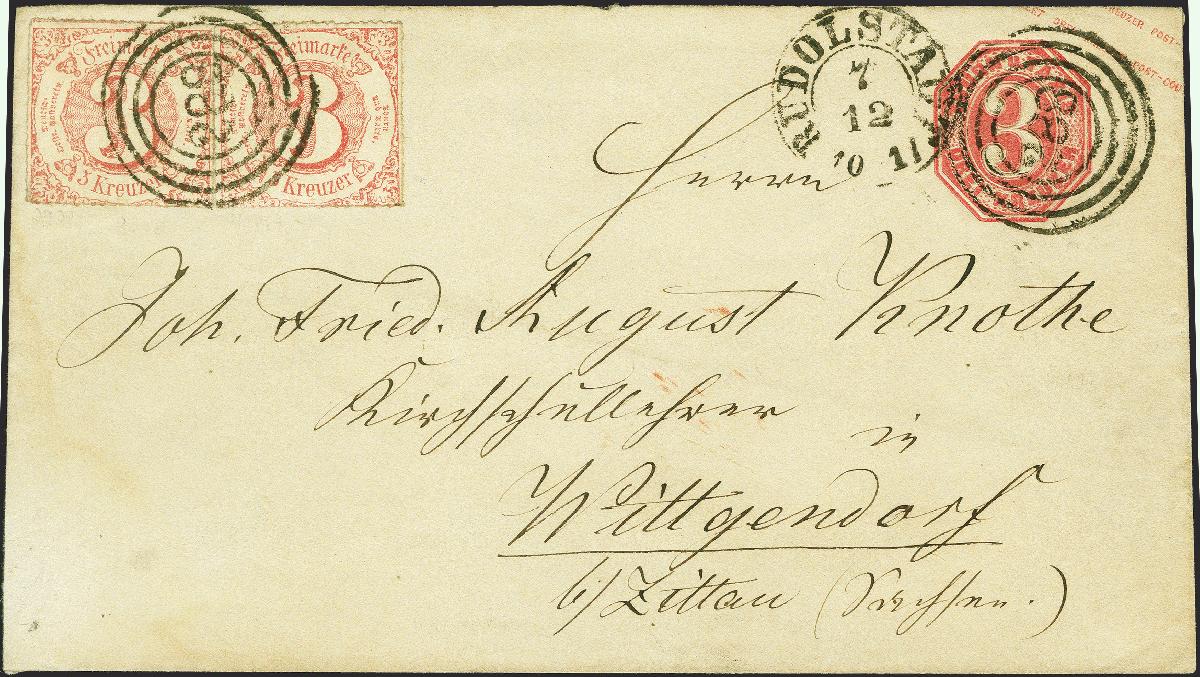 Freimarke
3
3 Kreuzer
Freimarke
3
Kreuzer
RUDOLSTADT
7
12
10 11
3
KREUZER POST-
POST-COU
Herrn
Joh. Fried. August Knothe
Kirchschullehrer
in
Wittgendorf
b/ Zittau (Sachsen.)